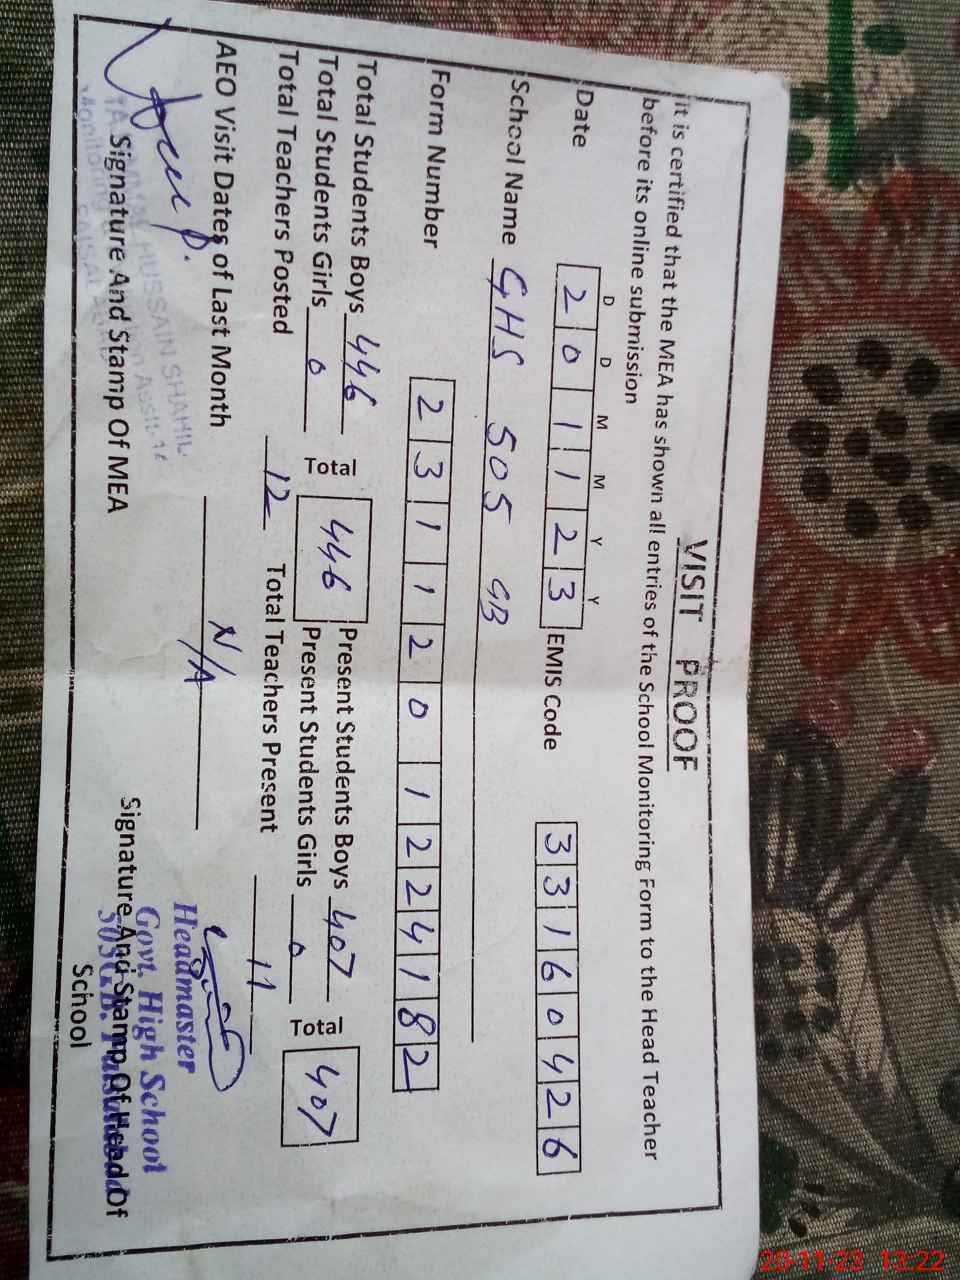 VISIT PROOF
It is certified that the MEA has shown all entries of the School Monitoring Form to the Head Teacher
before its online submission
D D M M Y Y
Date 2 0 1 1 2 3 EMIS Code 3 3 1 6 0 4 2 6
School Name GHS 505 GB
Form Number 2 3 1 1 2 0 1 2 2 4 1 8 2
Total Students Boys 446 Total 446 Present Students Boys 407 Total 407
Total Students Girls 0 Present Students Girls 0
Total Teachers Posted 12 Total Teachers Present 11
AEO Visit Dates of Last Month N/A
HUSSAIN SHAHIL
Signature And Stamp Of MEA
Headmaster
Govt. High School
505 GB.
Signature And Stamp Of Head Of
School
20-11-23 13:22